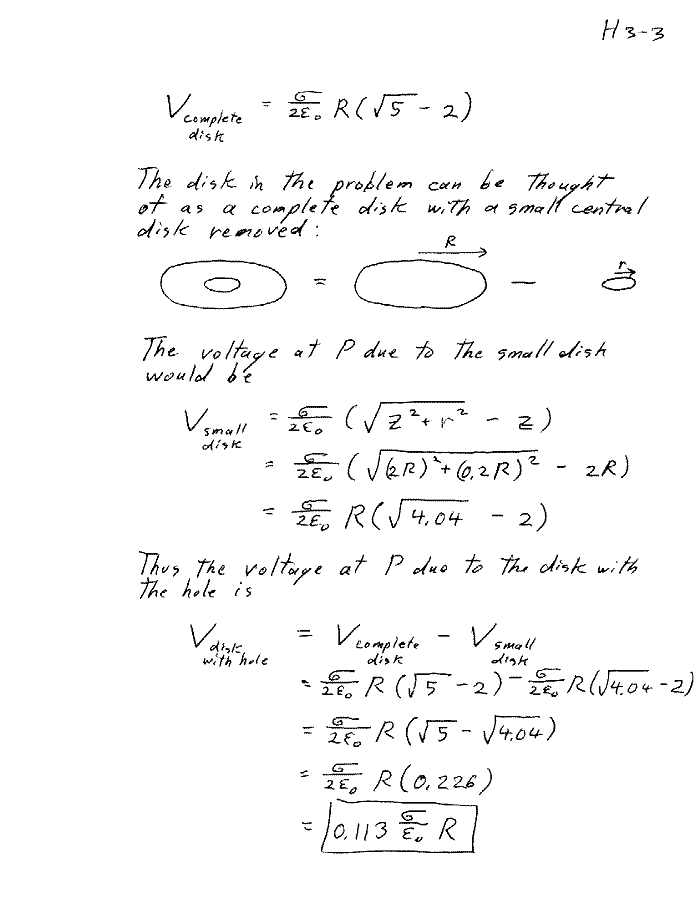 H3-3
V complete disk = σ/2ε₀ R(√5 - 2)
The disk in the problem can be thought
of as a complete disk with a small central
disk removed:
R
= — r
The voltage at P due to the small disk
would be
V small disk = σ/2ε₀ (√(z² + r²) - z)
= σ/2ε₀ (√((2R)² + (0.2R)²) - 2R)
= σ/2ε₀ R(√4.04 - 2)
Thus the voltage at P due to the disk with
the hole is
V disk with hole = V complete disk - V small disk
= σ/2ε₀ R(√5 - 2) - σ/2ε₀ R(√4.04 - 2)
= σ/2ε₀ R(√5 - √4.04)
= σ/2ε₀ R(0.226)
= 0.113 σ/ε₀ R